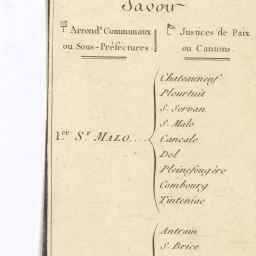 Savoir
Arrond.ˢ Communaux
ou Sous-Préfectures
Justices de Paix
ou Cantons
Chateauneuf
Plourtuit
S. Servan
S. Malo
1.ᵉʳ Sᵗ MALO....
Cancale
Dol
Pleinefougère
Combourg
Tinteniac
Antrain
S. Brice